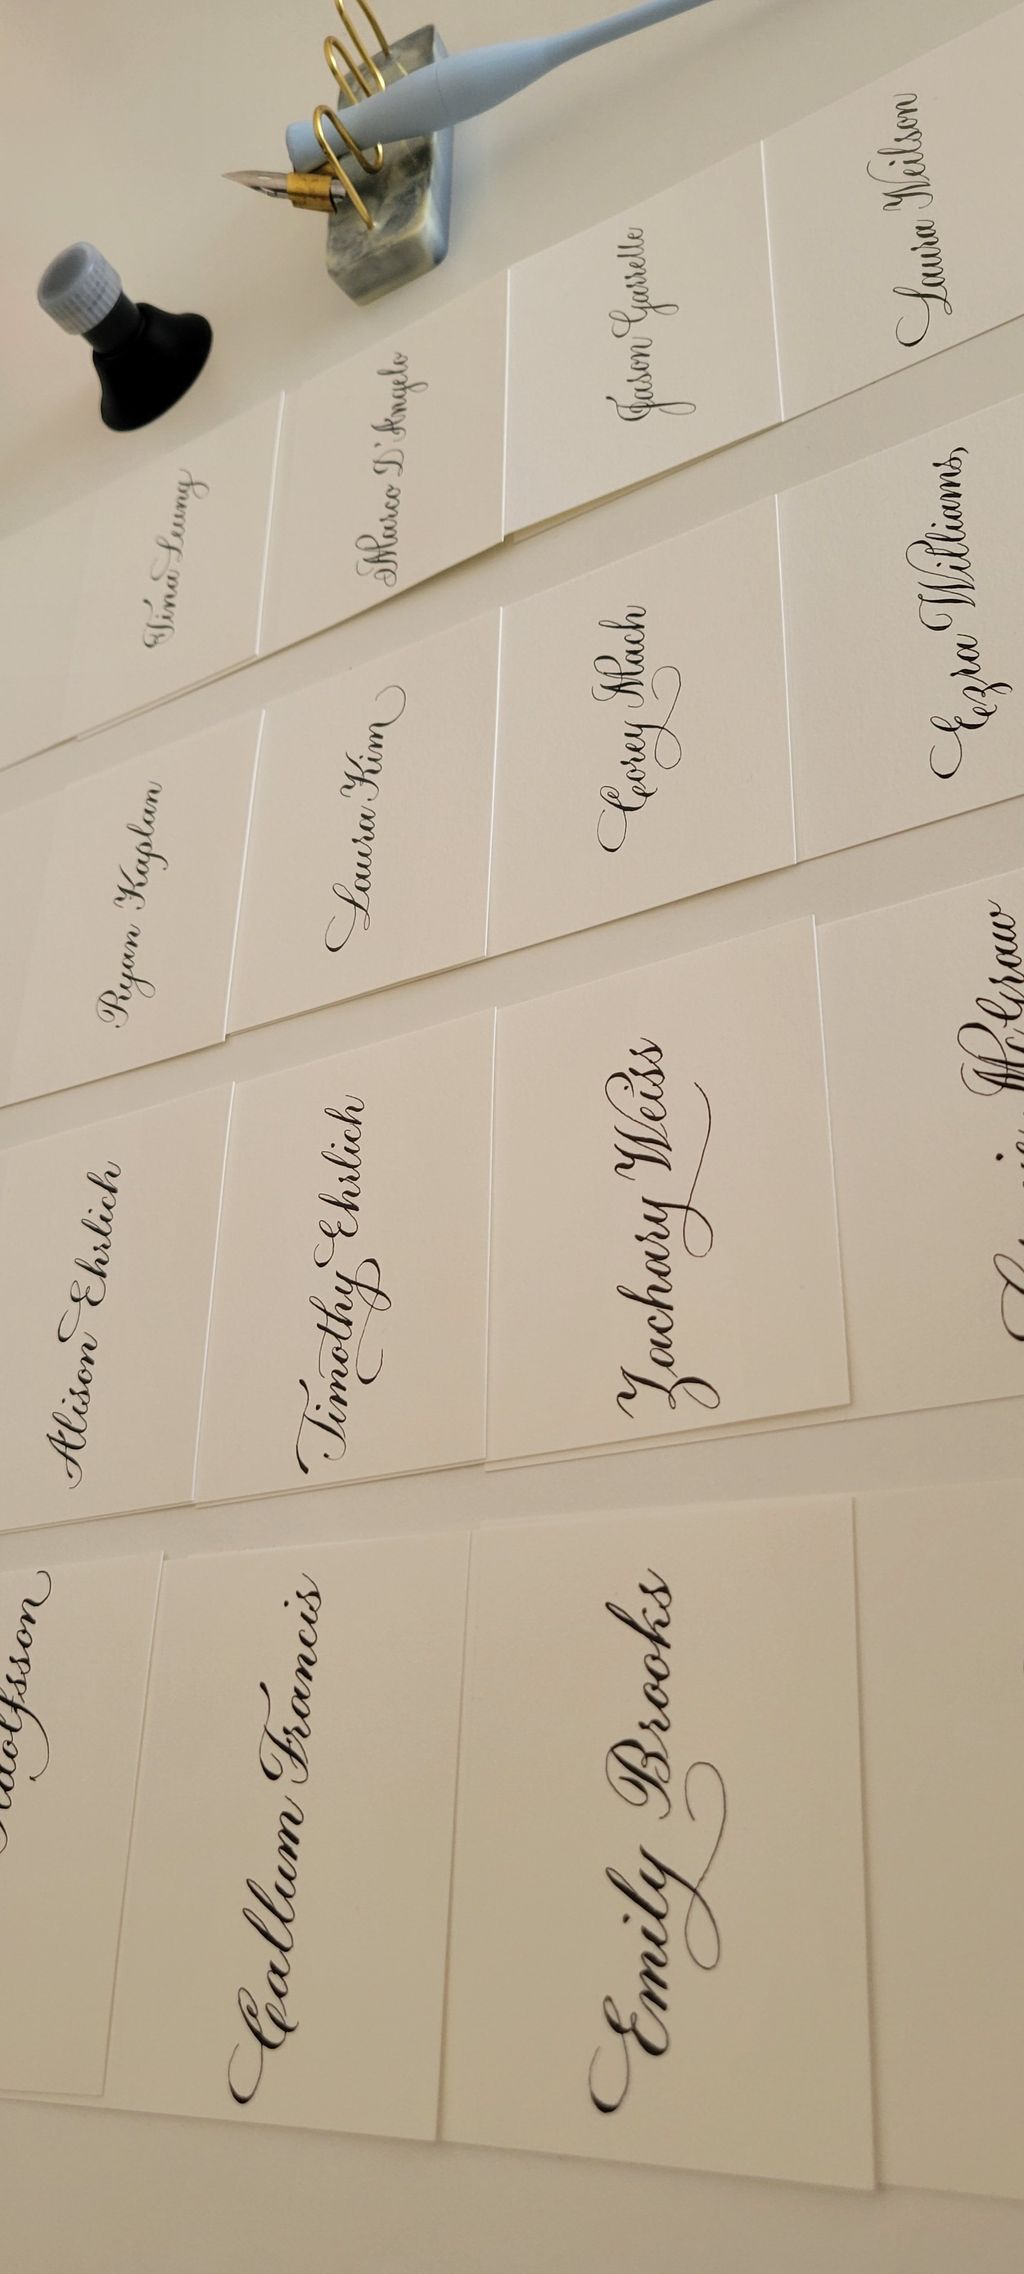 Tina Leung
Marco D'Angelo
Jason Garrelle
Laura Neilson
Ryan Kaplan
Laura Kim
Corey Mach
Ezra Williams,
Alison Ehrlich
Timothy Ehrlich
Zachary Weiss
McGraw
Callum Francis
Emily Brooks